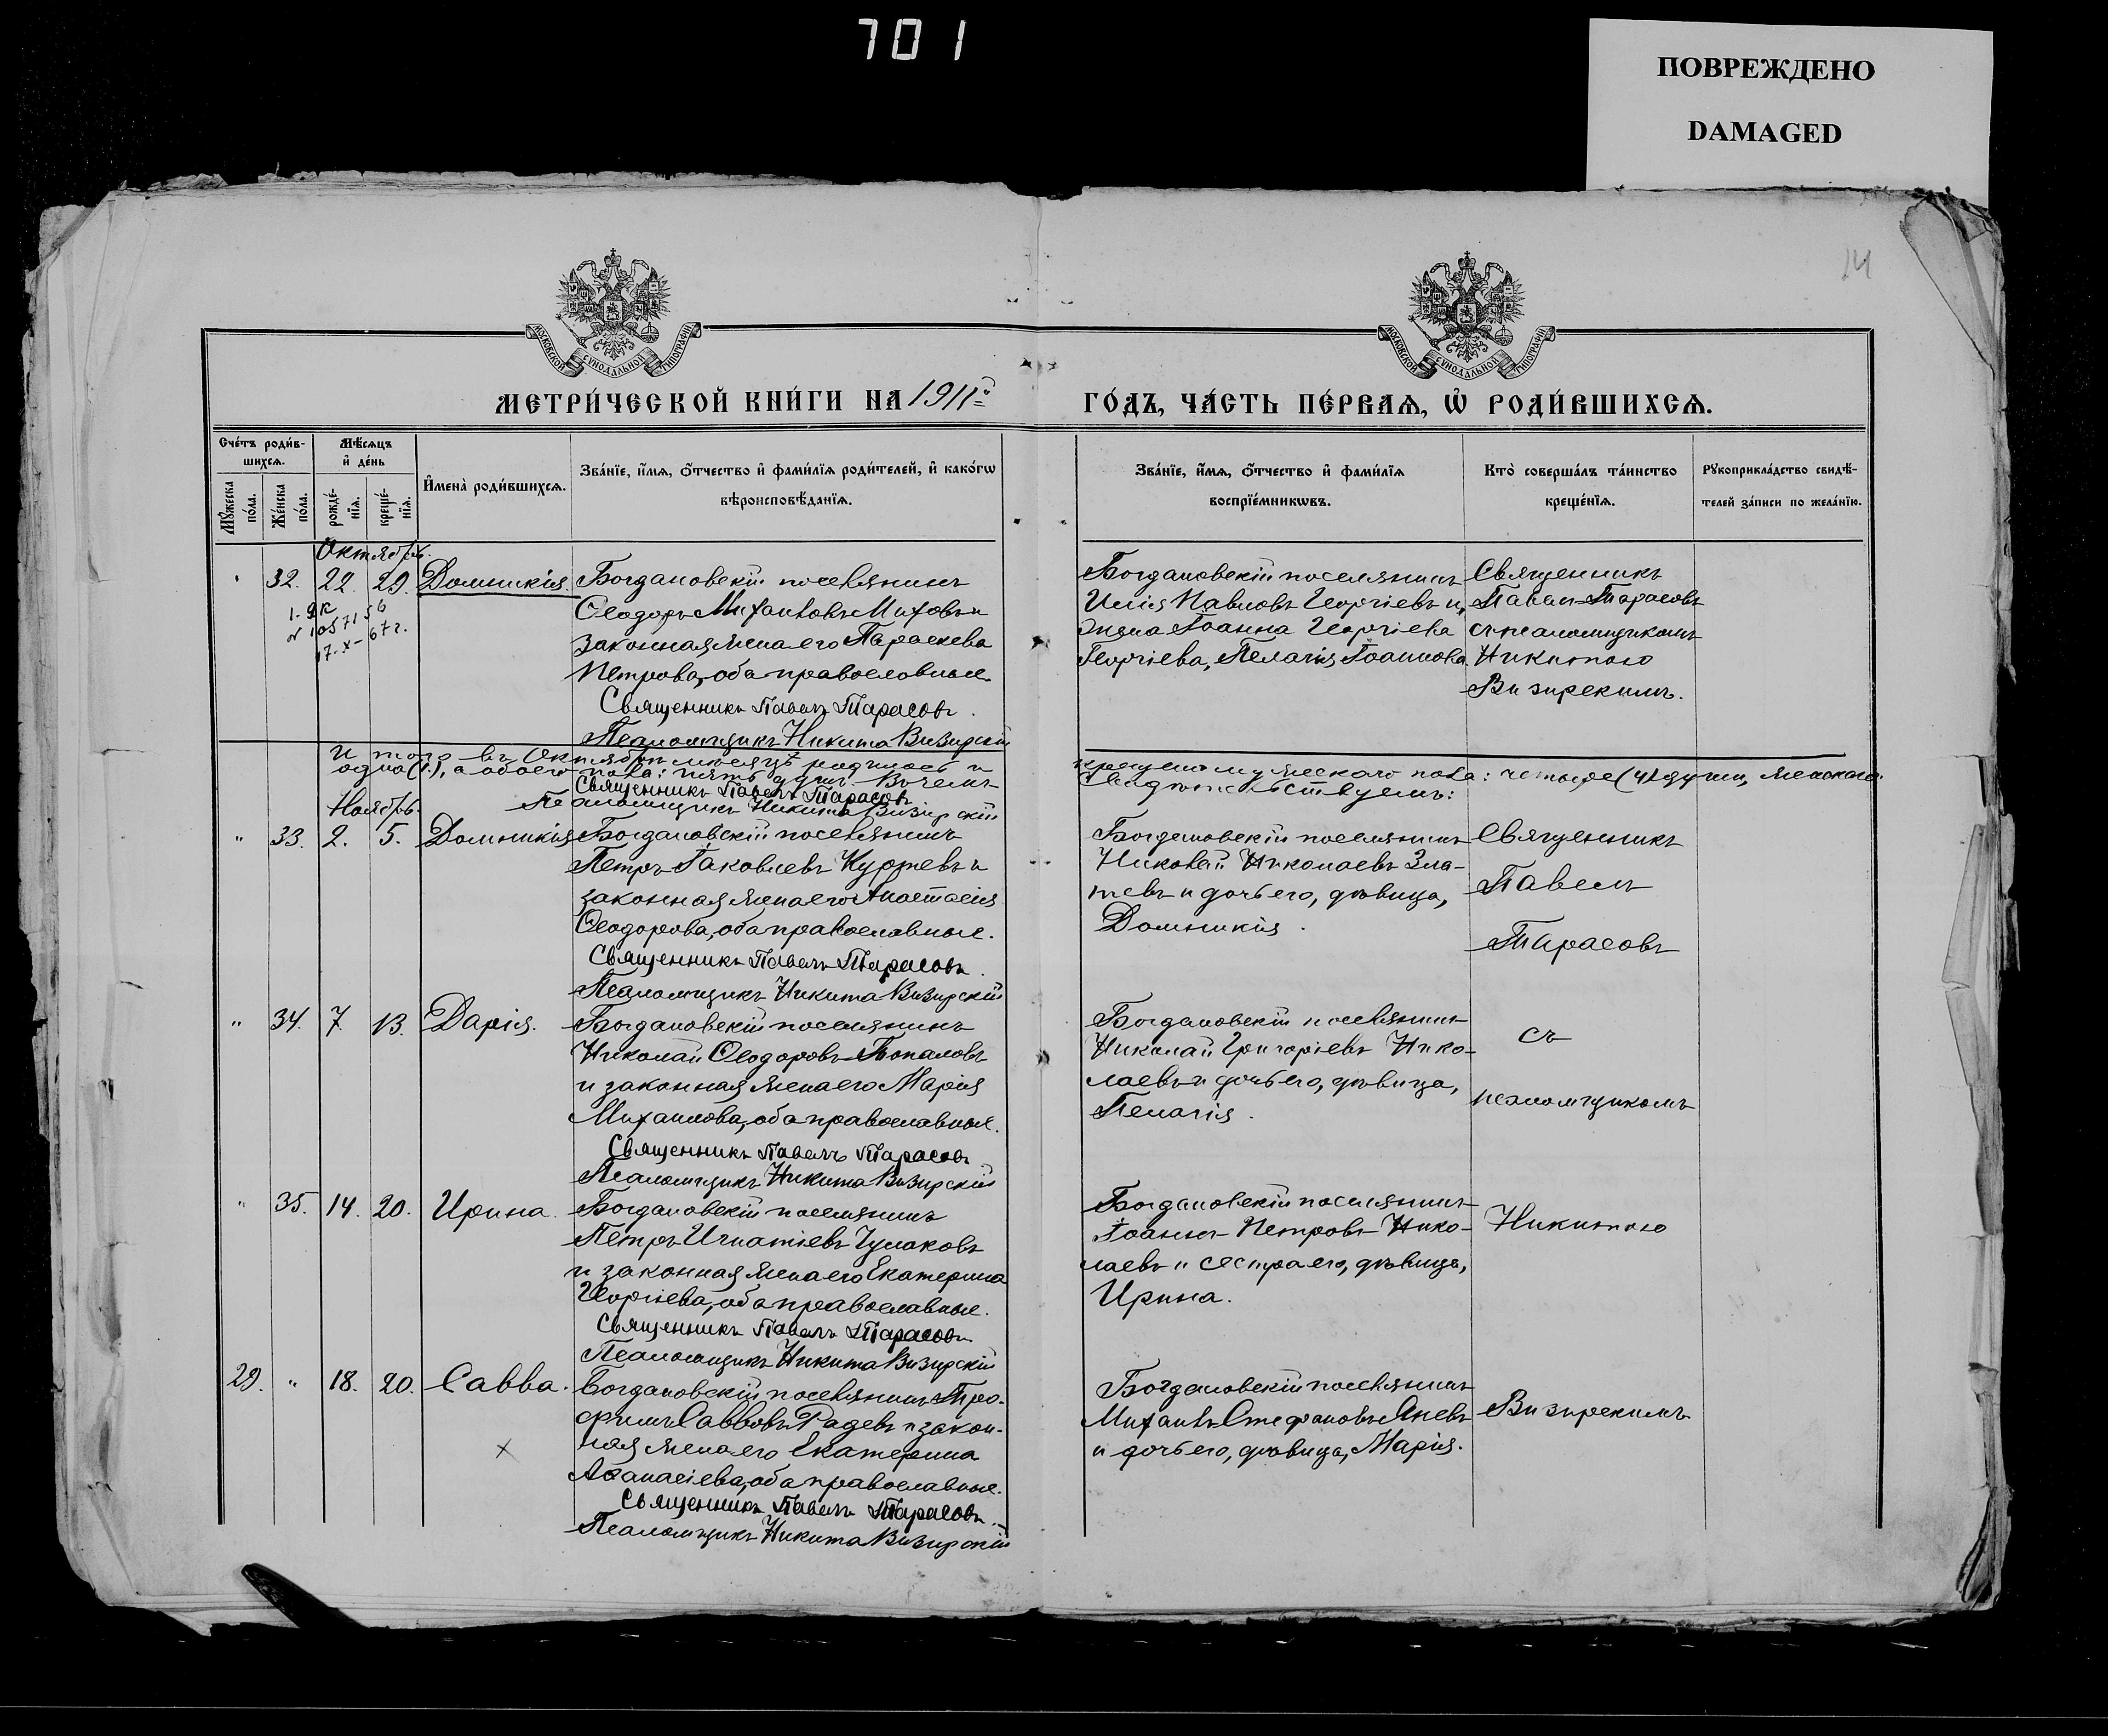 701
ПОВРЕЖДЕНО
DAMAGED
14
МОСКОВСКОЙ СѴНОДАЛЬНОЙ ТИПОГРАФІИ
МОСКОВСКОЙ СѴНОДАЛЬНОЙ ТИПОГРАФІИ
МЕТРИ́ЧЕСКОЙ КНИ́ГИ НА 1911й
ГО́ДЪ, ЧА́СТЬ ПЕ́РВАѦ, Ѡ҆ РОДИ́ВШИХСѦ.
Сче́тъ роди́в-
шихсѧ.
Мꙋ́жеска по́ла.
Же́нска по́ла.
Мѣ́сѧцъ
и҆ де́нь
рожде́-
нїѧ.
креще́-
нїѧ.
И҆мена̀ роди́вшихсѧ.
Зва́нїе, и҆́мѧ, ѻ҆́тчество и҆ фами́лїѧ роди́телей, и҆ како́гѡ
вѣроисповѣ́данїѧ.
Зва́нїе, и҆́мѧ, ѻ҆́тчество и҆ фами́лїѧ
воспрїе́мникѡвъ.
Кто̀ соверша́лъ та́инство
креще́нїѧ.
Рꙋкоприкла́дство свидѣ́-
телей за́писи по жела́нїю.
Октябрь.
" 32. 22. 29. Домникія.
17-X-67г.
Богдановскій поселянинъ
Ѳеодоръ Михаиловъ Миховъ и
законная жена его Параскева
Петрова, оба православные.
Священникъ Павелъ Тарасовъ.
Псаломщикъ Никита Визирскій
Богдановскій поселянинъ
Илія Павловъ Георгіевъ и
жена Іоанна Георгіева
Георгіева, Пелагія Іоаннова.
Священникъ
Павелъ Тарасовъ
съ псаломщикомъ
Никитою
Визирскимъ.
Итого въ Октябрѣ мѣсяцѣ родилось и
крещено мужескаго пола: четыре (4) души, женскаго
одна (1), а обоего пола: пять душъ. Въ чемъ
свидѣтельствуемъ:
Священникъ Павелъ Тарасовъ
Псаломщикъ Никита Визирскій
Ноябрь.
" 33. 2. 5. Домникія
Богдановскій поселянинъ
Петръ Іаковлевъ Курževъ и
законная жена его Анастасія
Ѳеодорова, оба православные.
Священникъ Павелъ Тарасовъ.
Псаломщикъ Никита Визирскій
Богдановскій поселянинъ
Николай Николаевъ Зла-
тевъ и дочь его, дѣвица,
Домникія.
Священникъ
Павелъ
Тарасовъ
" 34. 7. 13. Дарія.
Богдановскій поселянинъ
Николай Ѳеодоровъ Топаловъ
и законная жена его Марія
Михаилова, оба православные.
Священникъ Павелъ Тарасовъ
Псаломщикъ Никита Визирскій
Богдановскій поселянинъ
Николай Григоріевъ Нико-
лаевъ и дочь его, дѣвица,
Пелагія.
съ
псаломщикомъ
" 35. 14. 20. Ирина.
Богдановскій поселянинъ
Петръ Игнатіевъ Чулаковъ
и законная жена его Екатерина
Георгіева, оба православные.
Священникъ Павелъ Тарасовъ
Псаломщикъ Никита Визирскій
Богдановскій поселянинъ
Іоаннъ Петровъ Нико-
лаевъ и сестра его, дѣвица,
Ирина.
Никитою
29. " 18. 20. Савва.
Богдановскій поселянинъ Тро-
фимъ Саввовъ Радевъ и закон-
ная жена его Екатерина
Аѳанасіева, оба православные.
Священникъ Павелъ Тарасовъ.
Псаломщикъ Никита Визирскій
Богдановскій поселянинъ
Михаилъ Стефановъ Яневъ
и дочь его, дѣвица, Марія.
Визирскимъ